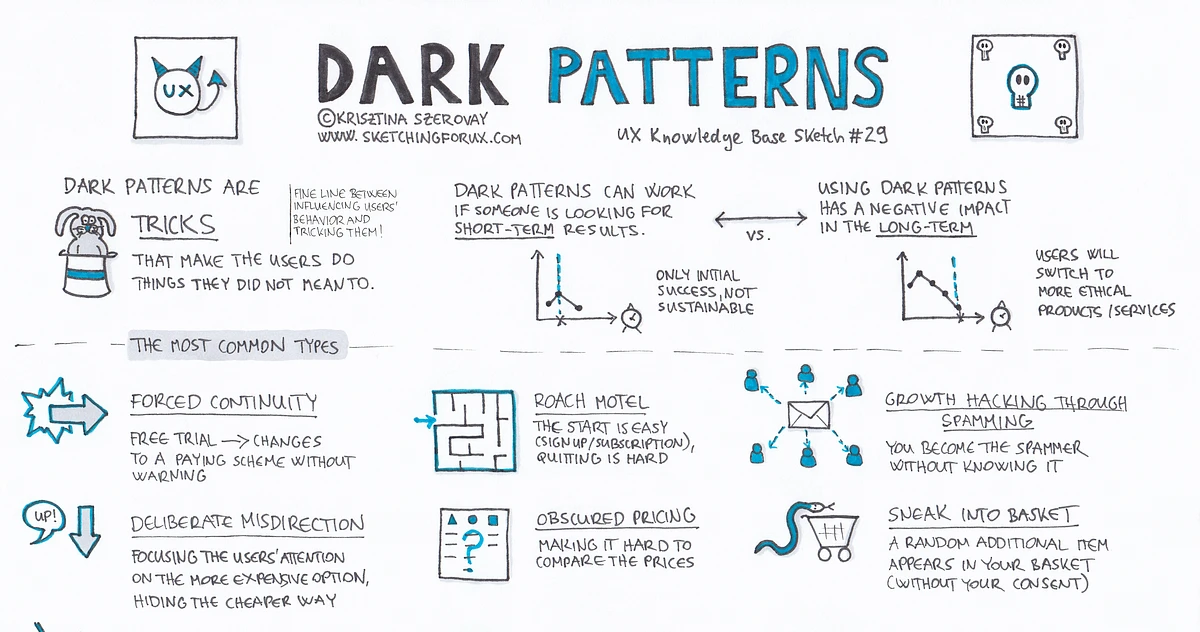 UX
DARK PATTERNS
©KRISZTINA SZEROVAY
WWW.SKETCHINGFORUX.COM
UX Knowledge Base Sketch #29
DARK PATTERNS ARE
TRICKS
THAT MAKE THE USERS DO
THINGS THEY DID NOT MEAN TO.
FINE LINE BETWEEN
INFLUENCING USERS'
BEHAVIOR AND
TRICKING THEM!
DARK PATTERNS CAN WORK
IF SOMEONE IS LOOKING FOR
SHORT-TERM RESULTS.
ONLY INITIAL
SUCCESS, NOT
SUSTAINABLE
VS.
USING DARK PATTERNS
HAS A NEGATIVE IMPACT
IN THE LONG-TERM
USERS WILL
SWITCH TO
MORE ETHICAL
PRODUCTS/SERVICES
THE MOST COMMON TYPES
FORCED CONTINUITY
FREE TRIAL → CHANGES
TO A PAYING SCHEME WITHOUT
WARNING
ROACH MOTEL
THE START IS EASY
(SIGN UP/SUBSCRIPTION),
QUITTING IS HARD
GROWTH HACKING THROUGH
SPAMMING
YOU BECOME THE SPAMMER
WITHOUT KNOWING IT
UP!
DELIBERATE MISDIRECTION
FOCUSING THE USERS' ATTENTION
ON THE MORE EXPENSIVE OPTION,
HIDING THE CHEAPER WAY
?
OBSCURED PRICING
MAKING IT HARD TO
COMPARE THE PRICES
SNEAK INTO BASKET
A RANDOM ADDITIONAL ITEM
APPEARS IN YOUR BASKET
(WITHOUT YOUR CONSENT)